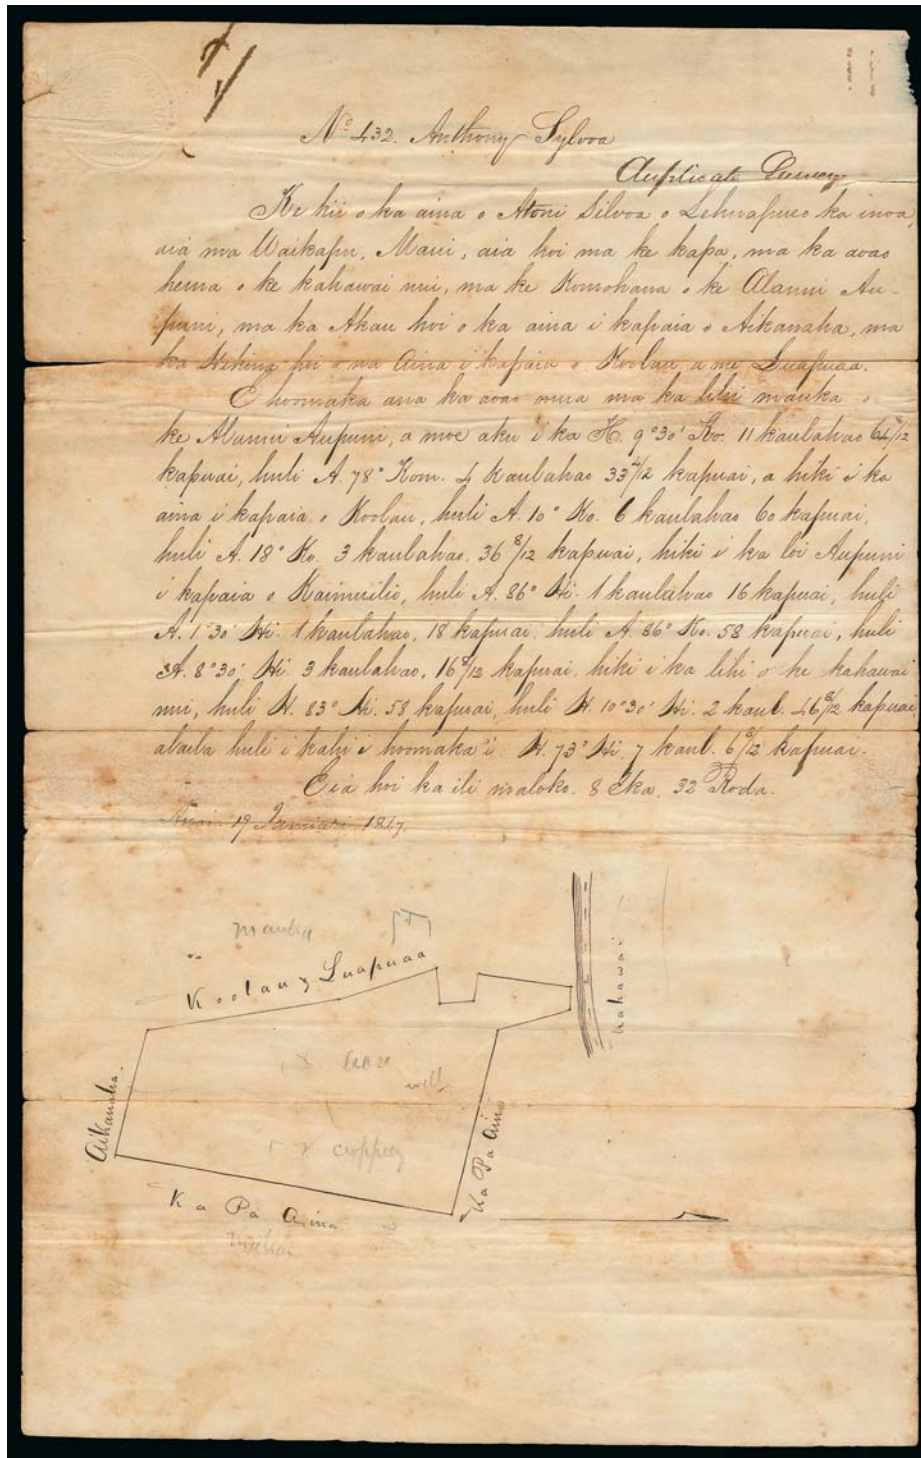 No 432. Anthony Sylvoa
Duplicate Survey
Ke kii o ka aina o Atoni Silvoa o Lehuapueo ka inoa,
aia ma Waikapu, Maui, aia hoi ma ke kapa, ma ka aoao
hema o ke kahawai nui, ma ke Komohana o ke Alanui Au-
puni, ma ka Akau hoi o ka aina i kapaia o Aikanaha, ma
ka Hikina hoi o na Aina i kapaia o Koolau a me Luapuaa.
E hoomaka ana ka aoao mua ma ka lihi mauka o
ke Alanui Aupuni, a moe aku i ka H. 9°30' Ko. 11 kaulahao 64 /12
kapuai, huli A. 78° Kom. 4 Kaulahao 33 4/12 kapuai, a hiki i ka
aina i kapaia o Koolau, huli A. 10° Ko. 6 kaulahao 60 kapuai,
huli A. 18° Ko. 3 kaulahao. 36 8/12 kapuai, hiki i ka loi Aupuni
i kapaia o Kaimuilio, huli A. 86° Hi. 1 kaulahao 16 kapuai, huli
A. 1°30' Hi. 1 kaulahao, 18 kapuai. huli A. 86° Ko. 58 kapuai, huli
A. 8°30' Hi. 3 kaulahao, 16 8/12 kapuai. hiki i ka lihi o ke kahawai
nui, huli H. 83° Hi. 58 kapuai, huli H. 10°30' Hi. 2 kaul. 46 8/12 kapuai
alaila huli i kahi i hoomaka'i. H. 73° Hi 7 kaul. 6 8/12 kapuai.
Eia hoi ka ili maloko. 8 Eka. 32 Roda.
19 Januari 1847.
mauka
Koolau & Luapuaa
Kahawai
Aikanaha.
lease
well
cropping
Ka Pa Aina
Ka Pa Aina
makai